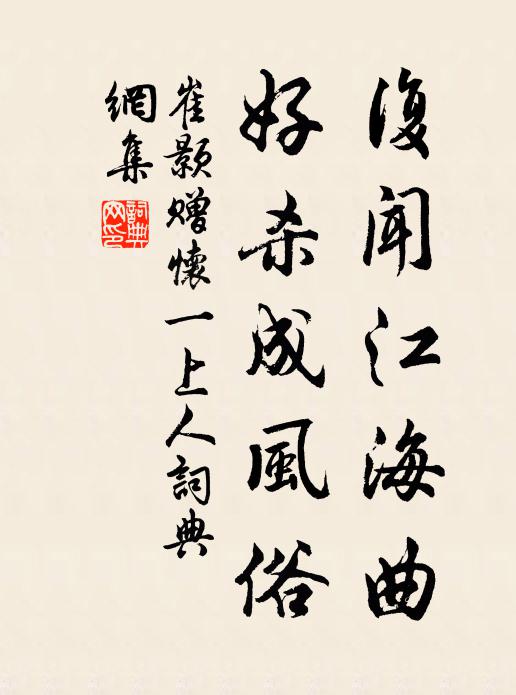 復聞江海曲
好杀成風俗
崔颢赠懷一上人詞典
網集
詞典
网印